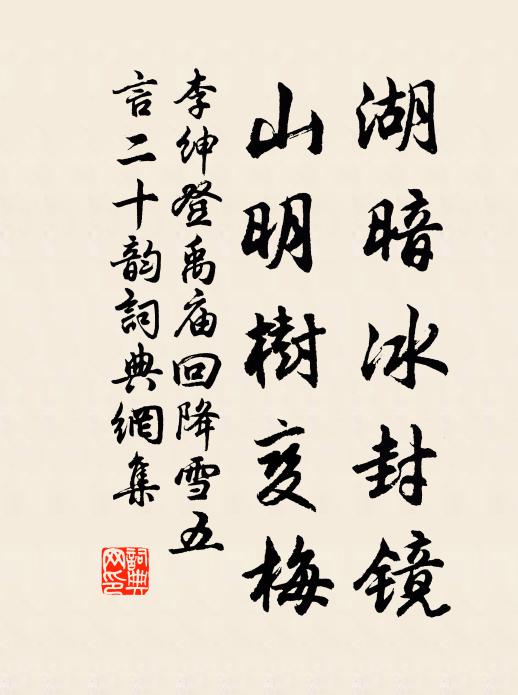 湖暗冰封镜
山明樹变梅
李紳登禹庙回降雪五
言二十韵詞典網集
詞典
网印